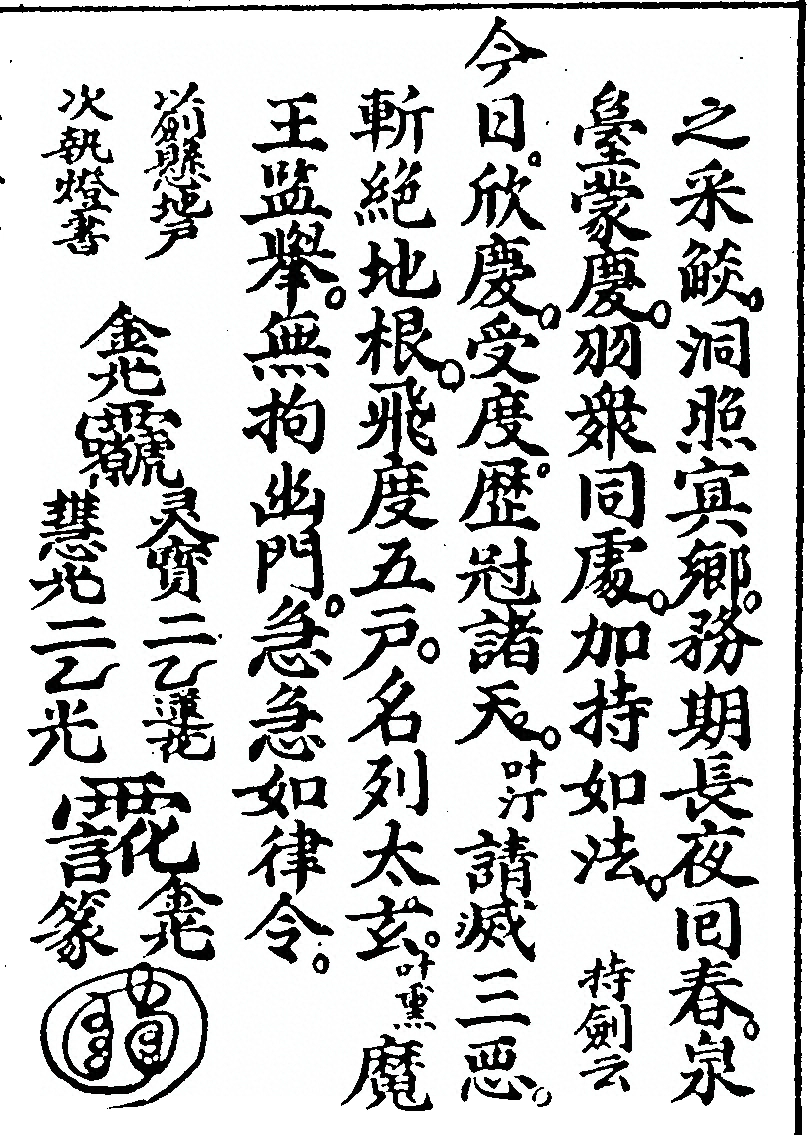 之采歘洞照冥鄉務期長夜回春泉
臺蒙慶羽衆同處加持如法持劍云
今日欣慶受度歷冠諸天叶汀請滅三惡
斬絶地根飛度五户名列太玄叶熏魔
王監舉無拘幽門急急如律令
前懸地户
次執燈書
金光
灵寳二乙蓮花
慧光二乙光
金光
篆